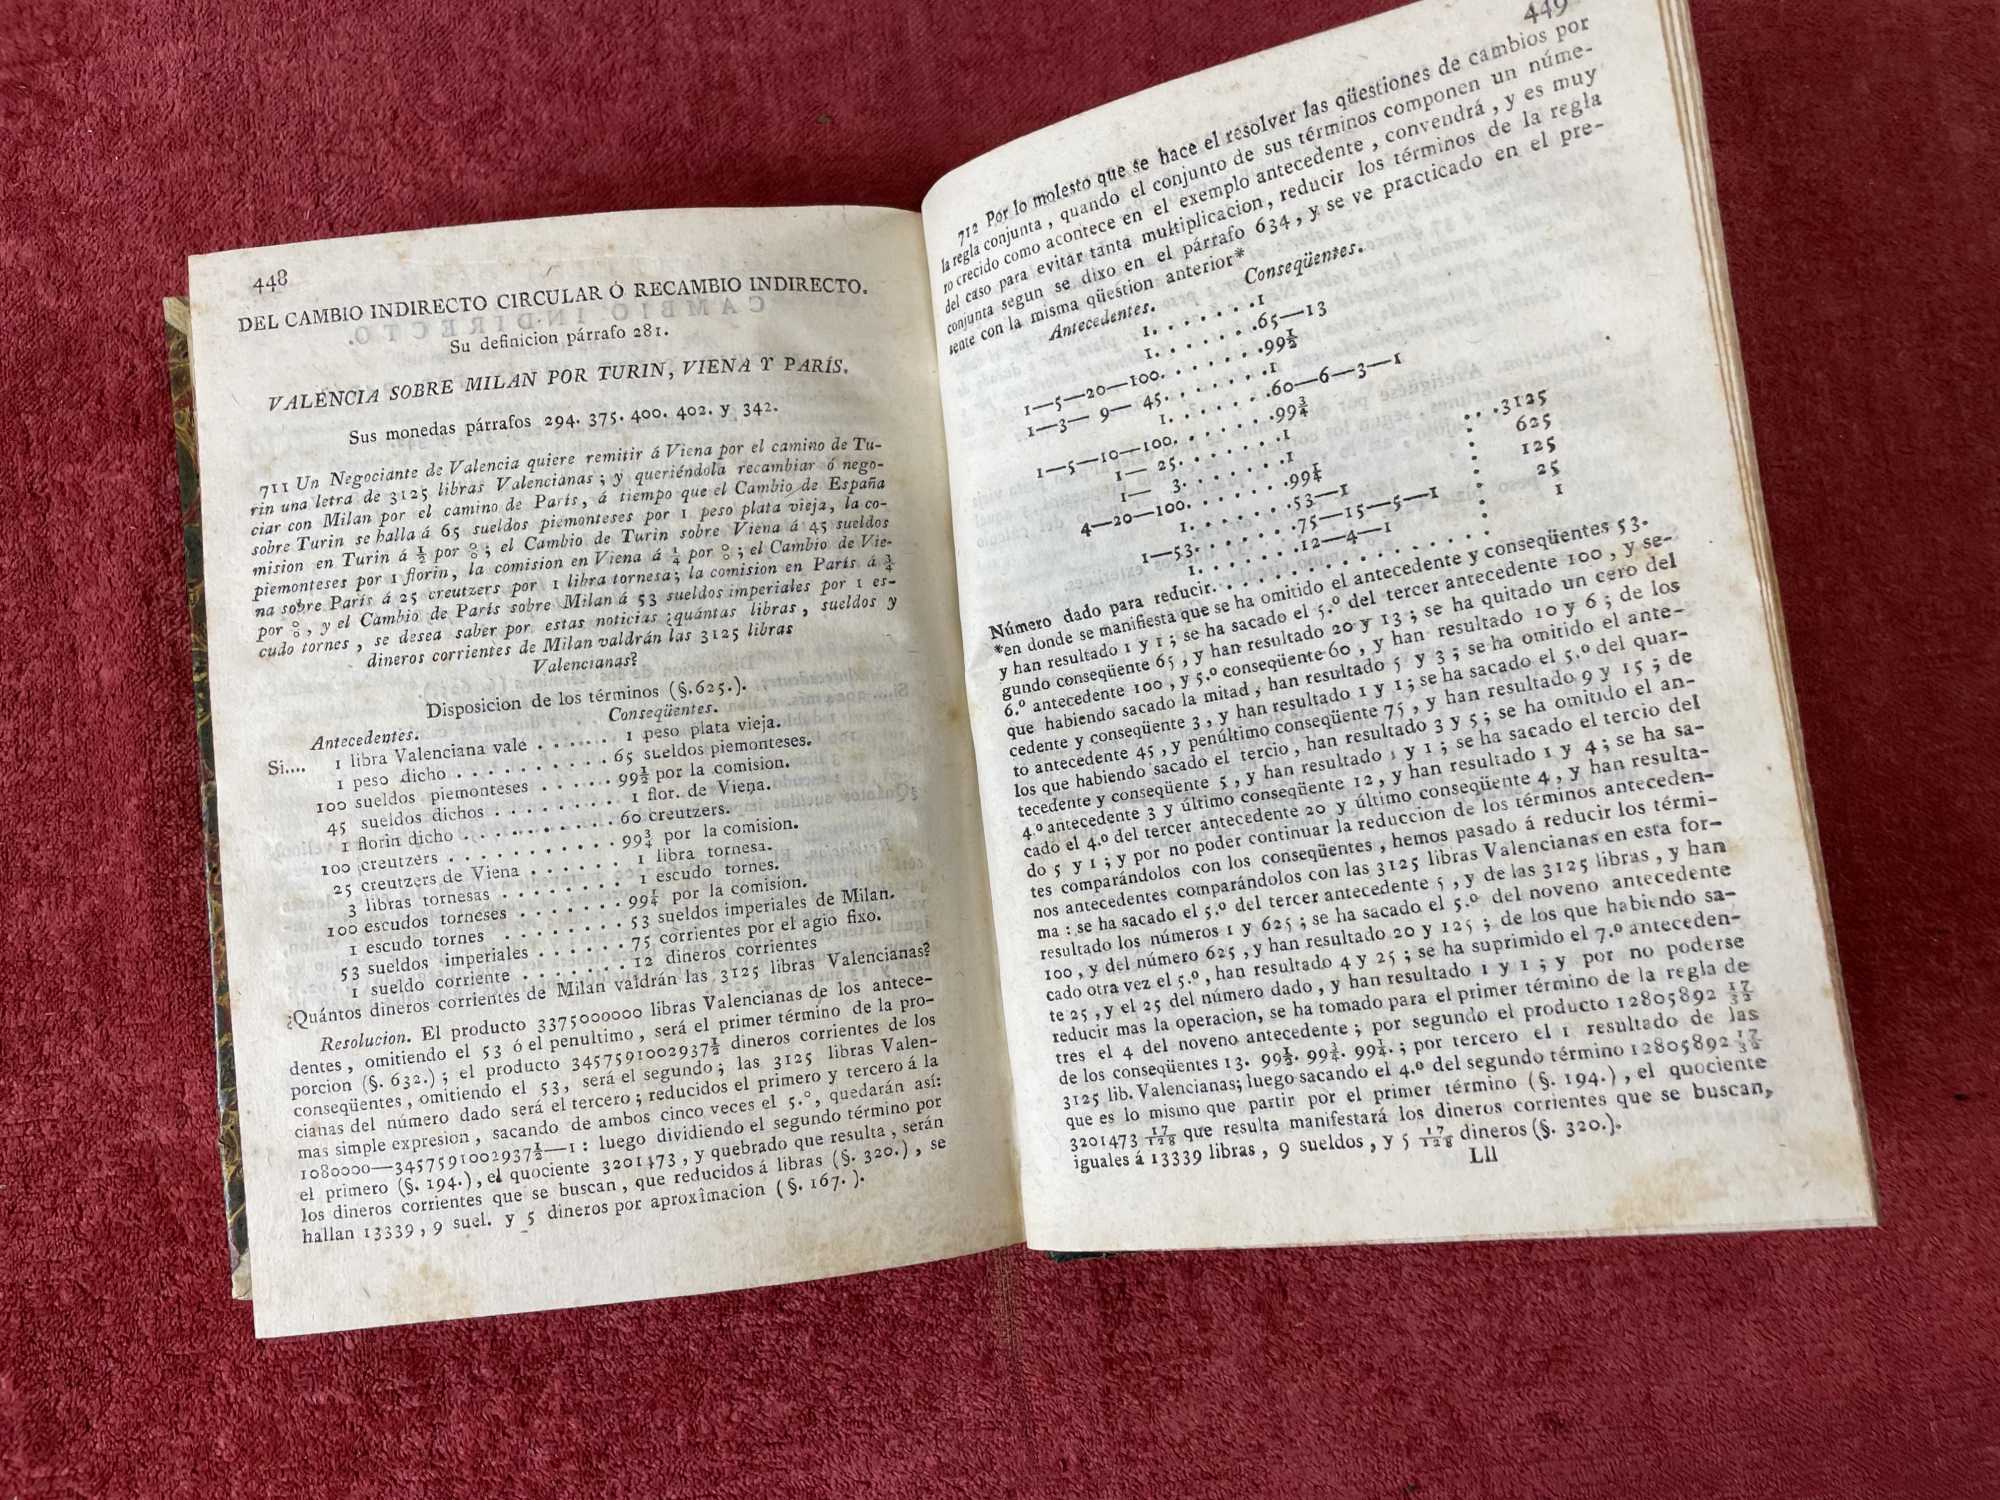 448
DEL CAMBIO INDIRECTO CIRCULAR Ó RECAMBIO INDIRECTO.
Su definicion párrafo 281.
VALENCIA SOBRE MILAN POR TURIN, VIENA Y PARÍS.
Sus monedas párrafos 294. 375. 400. 402. y 342.
711 Un Negociante de Valencia quiere remitir á Viena por el camino de Tu-
rin una letra de 3125 libras Valencianas; y queriéndola recambiar ó nego-
ciar con Milan por el camino de París, á tiempo que el Cambio de España
sobre Turin se halla á 65 sueldos piemonteses por 1 peso plata vieja, la co-
mision en Turin á ½ por %; el Cambio de Turin sobre Viena á 45 sueldos
piemonteses por 1 florin, la comision en Viena á ¼ por %; el Cambio de Vie-
na sobre París á 25 creutzers por 1 libra tornesa; la comision en París á ¾
por %, y el Cambio de París sobre Milan á 53 sueldos imperiales por 1 es-
cudo tornes, se desea saber por estas noticias ¿quántas libras, sueldos y
dineros corrientes de Milan valdrán las 3125 libras
Valencianas?
Disposicion de los términos (§.625.).
Antecedentes. Conseqüentes.
Si.... 1 libra Valenciana vale . . . . . . 1 peso plata vieja.
1 peso dicho . . . . . . . . . . 65 sueldos piemonteses.
100 sueldos piemonteses . . . . . . 99½ por la comision.
45 sueldos dichos . . . . . . . . 1 flor. de Viena.
1 florin dicho . . . . . . . . . . 60 creutzers.
100 creutzers . . . . . . . . . . . 99¾ por la comision.
25 creutzers de Viena . . . . . . 1 libra tornesa.
3 libras tornesas . . . . . . . . 1 escudo tornes.
100 escudos torneses . . . . . . . 99¼ por la comision.
1 escudo tornes . . . . . . . . 53 sueldos imperiales de Milan.
53 sueldos imperiales . . . . . . 75 corrientes por el agio fixo.
1 sueldo corriente . . . . . . . 12 dineros corrientes
¿Quántos dineros corrientes de Milan valdrán las 3125 libras Valencianas?
Resolucion. El producto 3375000000 libras Valencianas de los antece-
dentes, omitiendo el 53 ó el penultimo, será el primer término de la pro-
porcion (§. 632.); el producto 3457591002937½ dineros corrientes de los
conseqüentes, omitiendo el 53, será el segundo; las 3125 libras Valen-
cianas del número dado será el tercero; reducidos el primero y tercero á la
mas simple expresion, sacando de ambos cinco veces el 5.º, quedarán así:
1080000—3457591002937½—1: luego dividiendo el segundo término por
el primero (§. 194.), el quociente 3201473, y quebrado que resulta, serán
los dineros corrientes que se buscan, que reducidos á libras (§. 320.), se
hallan 13339, 9 suel. y 5 dineros por aproximacion (§. 167.).
449
712 Por lo molesto que se hace el resolver las qüestiones de cambios por
la regla conjunta, quando el conjunto de sus términos componen un núme-
ro crecido como acontece en el exemplo antecedente, convendrá, y es muy
del caso para evitar tanta multiplicacion, reducir los términos de la regla
conjunta segun se dixo en el párrafo 634, y se ve practicado en el pre-
sente con la misma qüestion anterior*
Antecedentes. Conseqüentes.
1. . . . . . .1
1. . . . . . .65—13
1—5—20—100. . . . . . .99½
1—3— 9— 45. . . . . . .1
1. . . . . . .60—6—3—1
1—5—10—100. . . . . . .99¾
1— 25. . . . . . .1
1— 3. . . . . . .1
4—20—100. . . . . . .99¼
1. . . . . . .53—1
1—53. . . . . . .75—15—5—1
1. . . . . . .12—4—1
Número dado para reducir. . . . . . . . . . . . . . .3125
625
125
25
1
*en donde se manifiesta que se ha omitido el antecedente y conseqüentes 53.
y han resultado 1 y 1; se ha sacado el 5.º del tercer antecedente 100, y se-
gundo conseqüente 65, y han resultado 20 y 13; se ha quitado un cero del
6.º antecedente 100, y 5.º conseqüente 60, y han resultado 10 y 6; de los
que habiendo sacado la mitad, han resultado 5 y 3; se ha omitido el ante-
cedente y conseqüente 3, y han resultado 1 y 1; se ha sacado el 5.º del quar-
to antecedente 45, y penúltimo conseqüente 75, y han resultado 9 y 15; de
los que habiendo sacado el tercio, han resultado 3 y 5; se ha omitido el an-
tecedente y conseqüente 5, y han resultado 1 y 1; se ha sacado el tercio del
4.º antecedente 3 y último conseqüente 12, y han resultado 1 y 4; se ha sa-
cado el 4.º del tercer antecedente 20 y último conseqüente 4, y han resulta-
do 5 y 1; y por no poder continuar la reduccion de los términos anteceden-
tes comparándolos con los conseqüentes, hemos pasado á reducir los térmi-
nos antecedentes comparándolos con las 3125 libras Valencianas en esta for-
ma: se ha sacado el 5.º del tercer antecedente 5, y de las 3125 libras, y han
resultado los números 1 y 625; se ha sacado el 5.º del noveno antecedente
100, y del número 625, y han resultado 20 y 125; de los que habiendo sa-
cado otra vez el 5.º, han resultado 4 y 25; se ha suprimido el 7.º anteceden-
te 25, y el 25 del número dado, y han resultado 1 y 1; y por no poderse
reducir mas la operacion, se ha tomado para el primer término de la regla de
tres el 4 del noveno antecedente; por segundo el producto 12805892 17/32
de los conseqüentes 13. 99½. 99¾. 99¼.; por tercero el 1 resultado de las
3125 lib. Valencianas; luego sacando el 4.º del segundo término 12805892 17/32
que es lo mismo que partir por el primer término (§. 194.), el quociente
3201473 17/128 que resulta manifestará los dineros corrientes que se buscan,
iguales á 13339 libras, 9 sueldos, y 5 17/128 dineros (§. 320.).
Lll